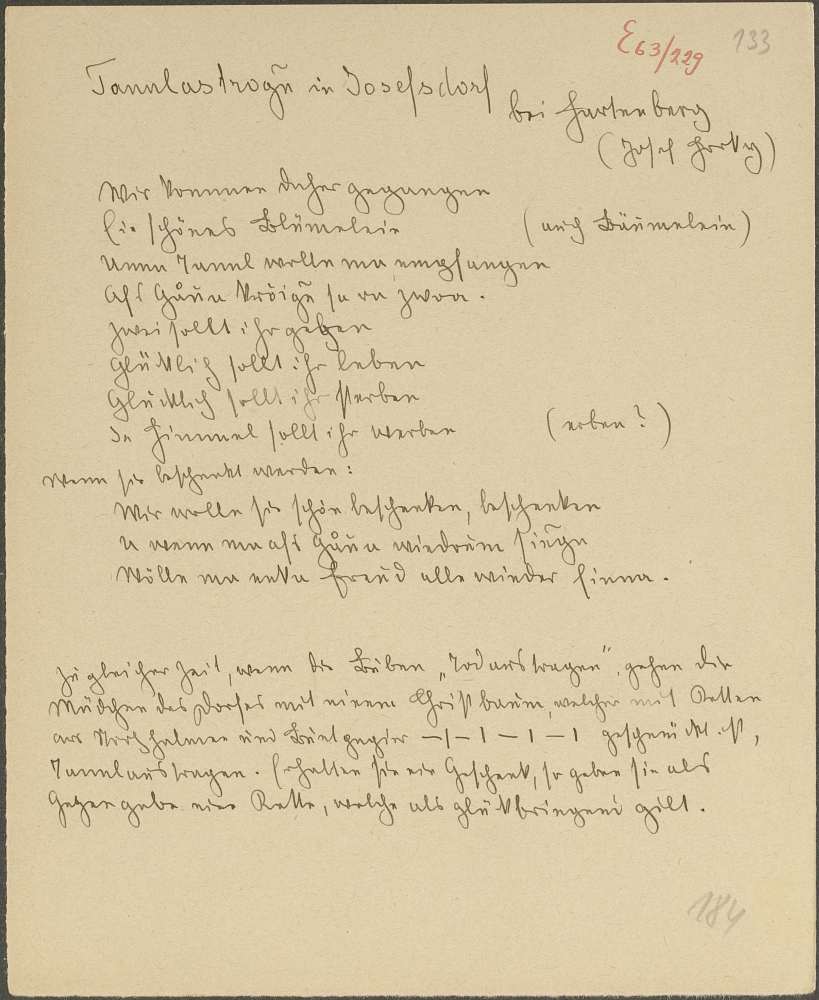 E63/229 133
Tannlastrogn in Josefsdorf
bei Hartenberg
(Josef)
Wir kommen daher gegangen
Ein schönes Blümelein (auch Bäumelein)
Unnan Tannl wolln ma empfangen
zwoa.
Zwei sollt ihr geben
Glücklich sollt ihr leben
Glücklich sollt ihr sterben
In Himmel sollt ihr werben (erben?)
Wenn sie beschenkt werden:
Wir wolln sie schön beschenken, beschenken
U wenn ma afs Gåua wiedrum singn
Wölln ma enka Freud alle wieder finna.
Zu gleicher Zeit, wenn die Buben „Todaustragen", gehen die
Mädchen des Dorfes mit einem Christbaum, welcher mit Ketten
aus Strohhalmen und Buntpapier –|–|–|–| geschmückt ist,
Tannlaustragen. Erhalten sie ein Geschenk, so geben sie als
Gegengabe eine Kette, welche als glückbringend gilt.
184